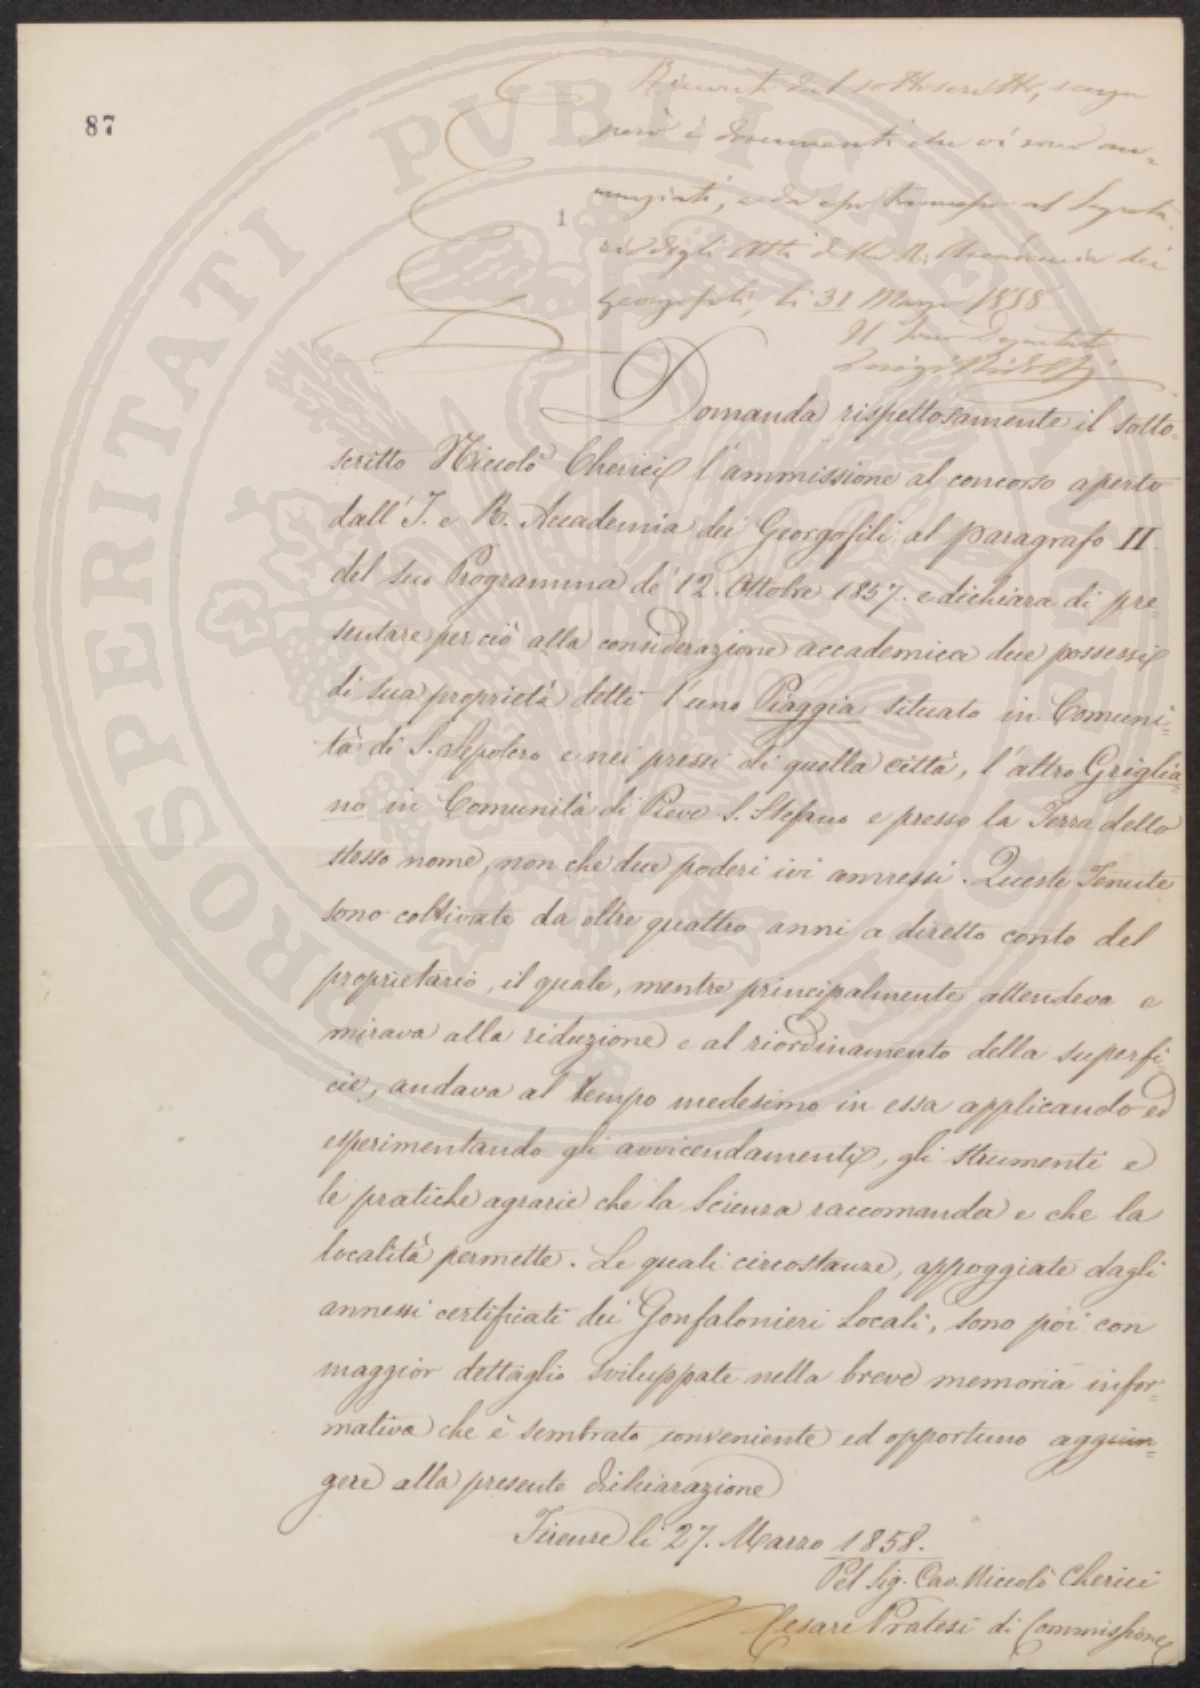 87
PROSPERITATI PVBLICAE AVGENDAE
Ricevuto dal sottoscritto, senza
però i documenti che vi sono an=
nunziati, e da esso trasmesso al Segreta
rio degli Atti della R. Accademia dei
Georgofili, li 31 Marzo 1858
1
Il Socio Deputato
Luigi Ridolfi
Domanda rispettosamente il sotto=
scritto Niccolò Cherici l'ammissione al concorso aperto
dall'I. e R. Accademia dei Georgofili al paragrafo II.
del suo Programma de' 12. Ottobre 1857. e dichiara di pre=
sentare per ciò alla considerazione accademica due possessi
di sua proprietà detti l'uno Piaggia situato in Comuni=
tà di S. Sepolcro e nei pressi di quella città, l'altro Griglia=
no in Comunità di Pieve S. Stefano e presso la Terra dello
stesso nome, non che due poderi ivi annessi. Queste Tenute
sono coltivate da oltre quattro anni a diretto conto del
proprietario, il quale, mentre principalmente attendeva e
mirava alla riduzione e al riordinamento della superfi
cie, andava al tempo medesimo in essa applicando ed
esperimentando gli avvicendamenti, gli strumenti e
le pratiche agrarie che la Scienza raccomanda e che la
località permette. Le quali circostanze, appoggiate dagli
annessi certificati dei Gonfalonieri Locali, sono poi con
maggior dettaglio sviluppate nella breve memoria infor=
mativa che è sembrato conveniente ed opportuno aggiun=
gere alla presente dichiarazione
Firenze li 27. Marzo 1858.
Pel Sig. Cav. Niccolò Cherici
Cesare Pratesi di Commissione